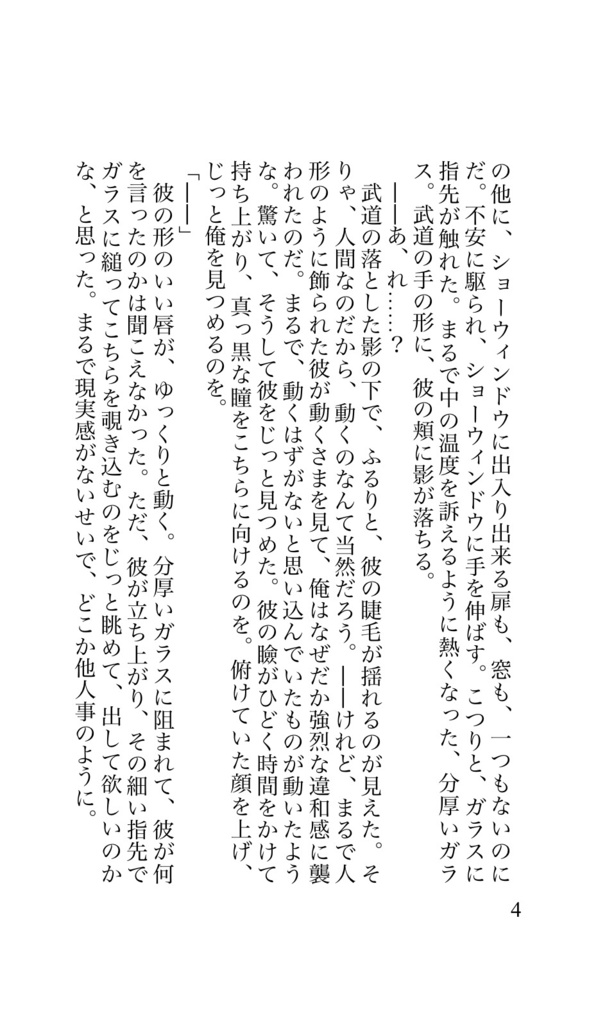 の他に、ショーウィンドウに出入り出来る扉も、窓も、一つもないのに
だ。不安に駆られ、ショーウィンドウに手を伸ばす。こつりと、ガラスに
指先が触れた。まるで中の温度を訴えるように熱くなった、分厚いガラ
ス。武道の手の形に、彼の頬に影が落ちる。
――あ、れ……？
武道の落とした影の下で、ふるりと、彼の睫毛が揺れるのが見えた。そ
りゃ、人間なのだから、動くのなんて当然だろう。――けれど、まるで人
形のように飾られた彼が動くさまを見て、俺はなぜだか強烈な違和感に襲
われたのだ。まるで、動くはずがないと思い込んでいたものが動いたよう
な。驚いて、そうして彼をじっと見つめた。彼の瞼がひどく時間をかけて
持ち上がり、真っ黒な瞳をこちらに向けるのを。俯けていた顔を上げ、
じっと俺を見つめるのを。
「――」
彼の形のいい唇が、ゆっくりと動く。分厚いガラスに阻まれて、彼が何
を言ったのかは聞こえなかった。ただ、彼が立ち上がり、その細い指先で
ガラスに縋ってこちらを覗き込むのをじっと眺めて、出して欲しいのか
な、と思った。まるで現実感がないせいで、どこか他人事のように。
4